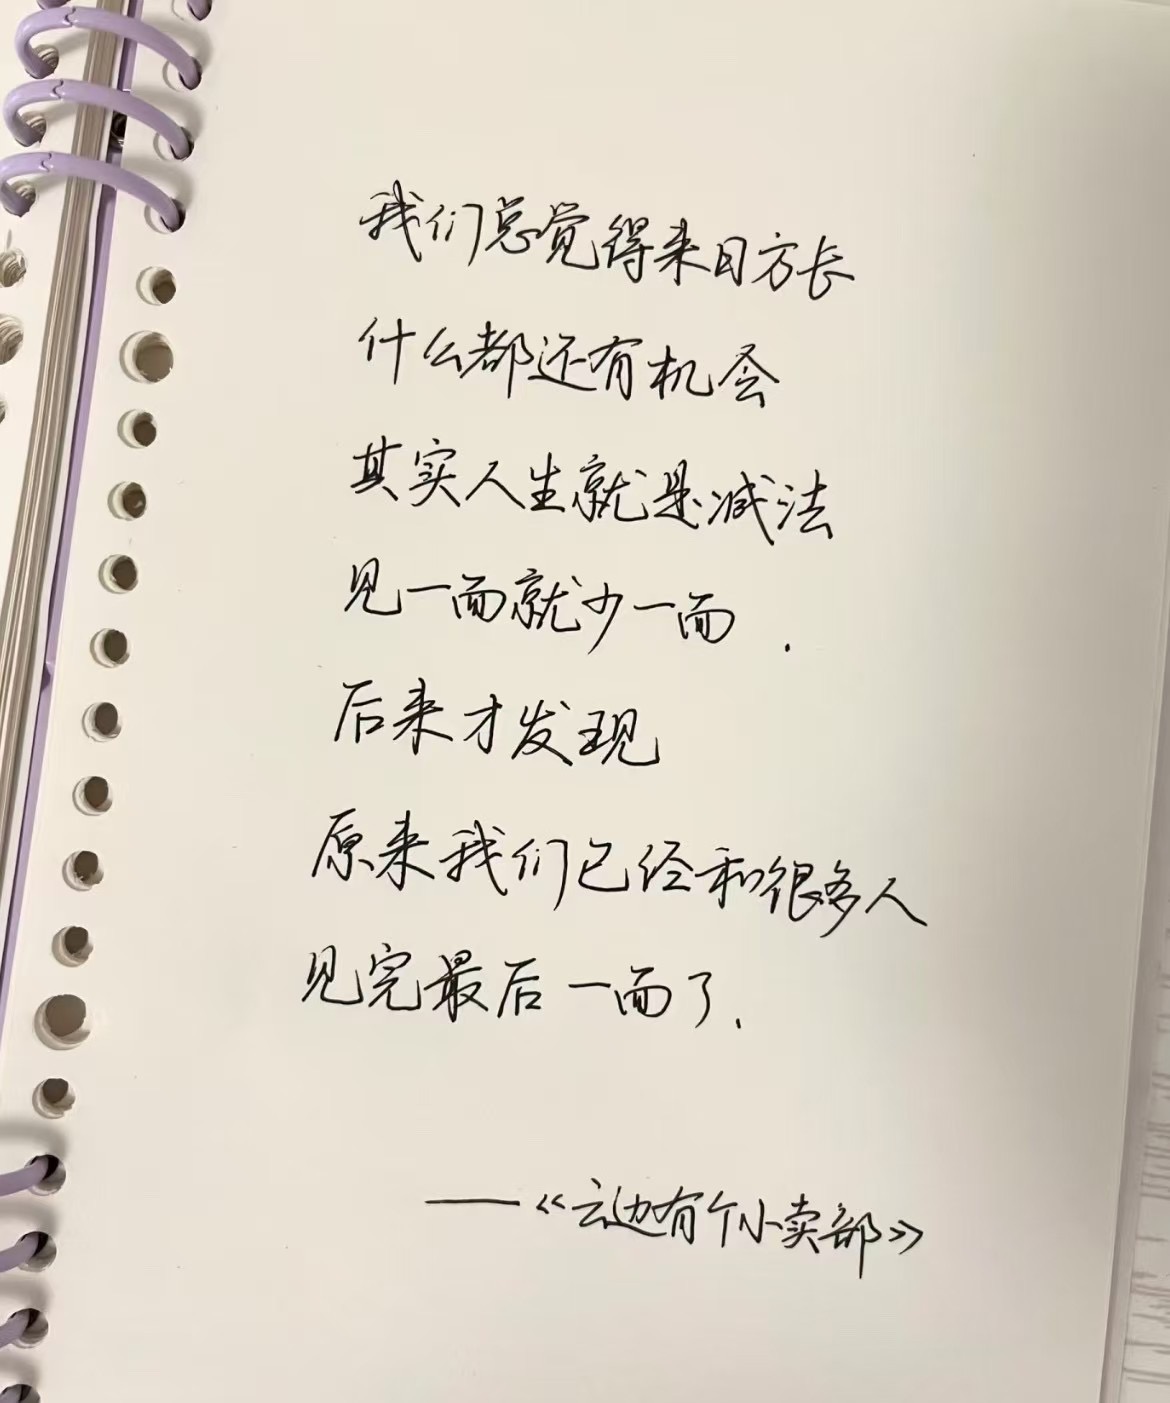 我们总觉得来日方长
什么都还有机会
其实人生就是减法
见一面就少一面.
后来才发现
原来我们已经和很多人
见完最后一面了.
——《云边有个小卖部》